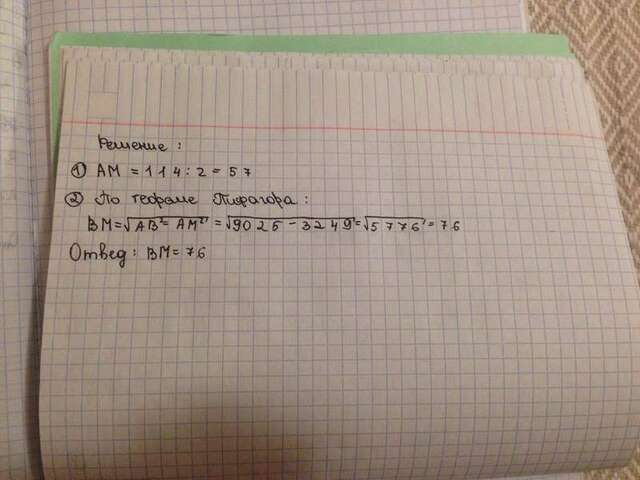 Решение:
① AM = 114 : 2 = 57
② По теореме Пифагора:
BM = √AB² - AM² = √9025 - 3249 = √5776 = 76
Ответ: BM = 76